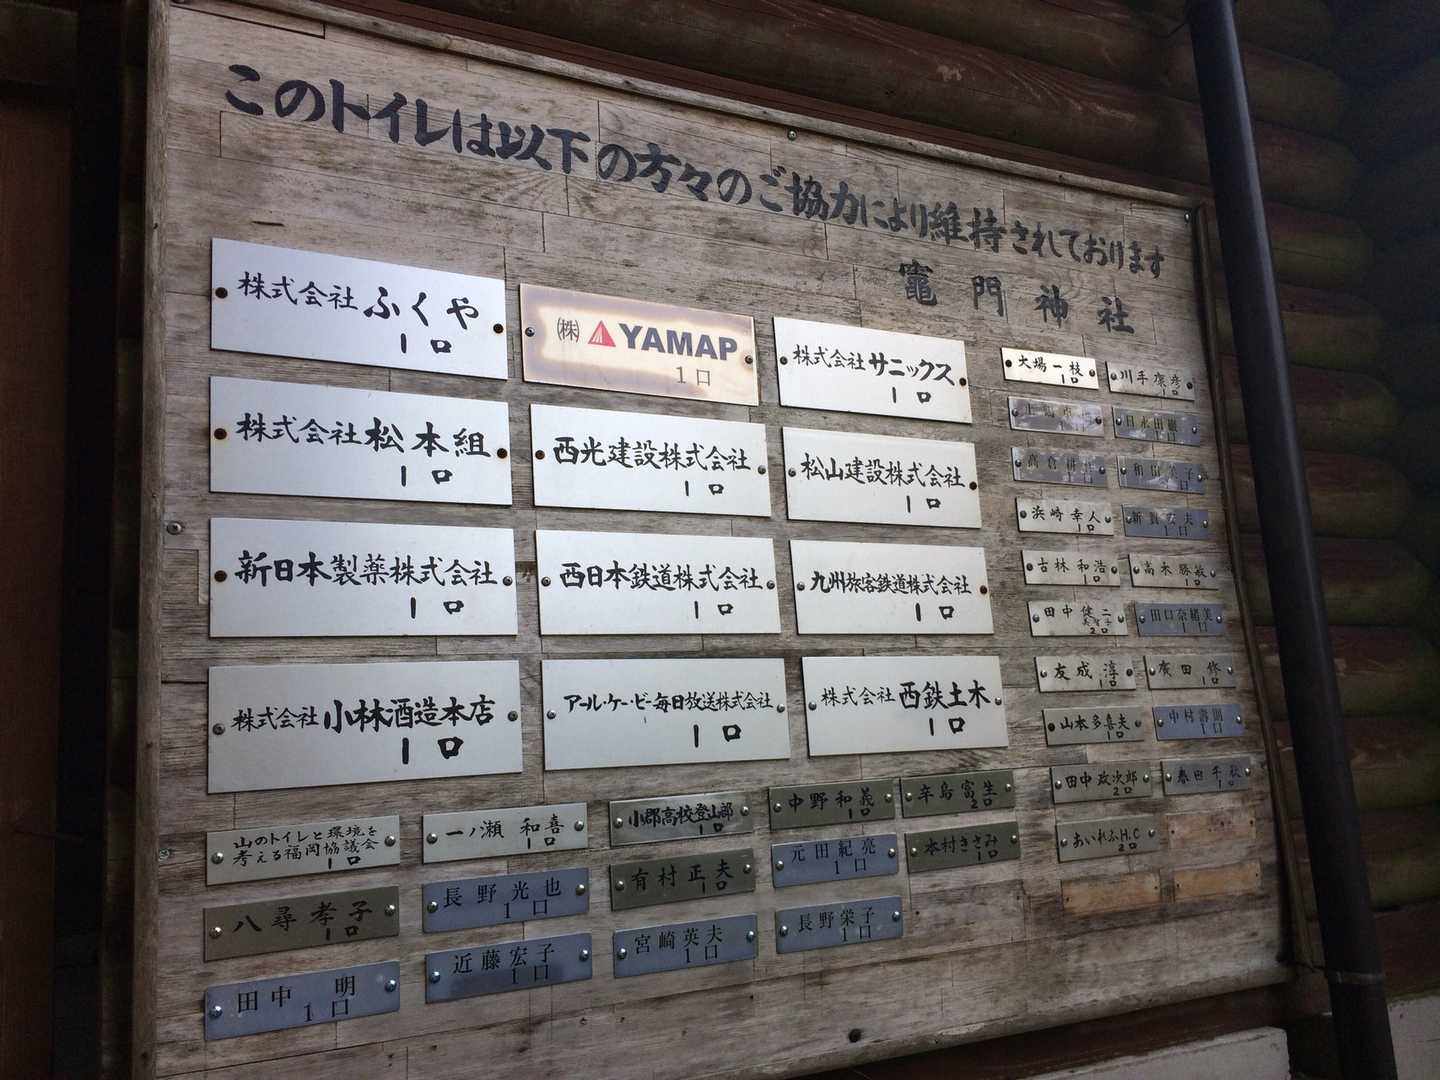 このトイレは以下の方々のご協力により維持されております
竈門神社
株式会社ふくや
1口
㈱ YAMAP
1口
株式会社サニックス
1口
株式会社松本組
1口
西光建設株式会社
1口
松山建設株式会社
1口
新日本製薬株式会社
1口
西日本鉄道株式会社
1口
九州旅客鉄道株式会社
1口
株式会社小林酒造本店
1口
アール・ケー・ビー毎日放送株式会社
1口
株式会社西鉄土木
1口
大場一枝
1口
川手康彦
1口
1口
日永田
1口
高倉
1口
和田 子
1口
浜崎幸人
1口
夫
1口
古林和浩
1口
高木勝敏
1口
田中健二
2口
田口奈緒美
1口
友成淳
1口
廣田修
1口
山本多喜夫
1口
中村壽則
1口
田中政次郎
2口
春田千秋
1口
あいれふH.C
2口
山のトイレと環境を
考える福岡協議会
1口
一ノ瀬和喜
1口
小郡高校登山部
1口
中野和義
1口
辛島富生
2口
八尋孝子
1口
長野光也
1口
有村正夫
1口
元田紀亮
1口
本村きさみ
1口
田中明
1口
近藤宏子
1口
宮崎英夫
1口
長野栄子
1口